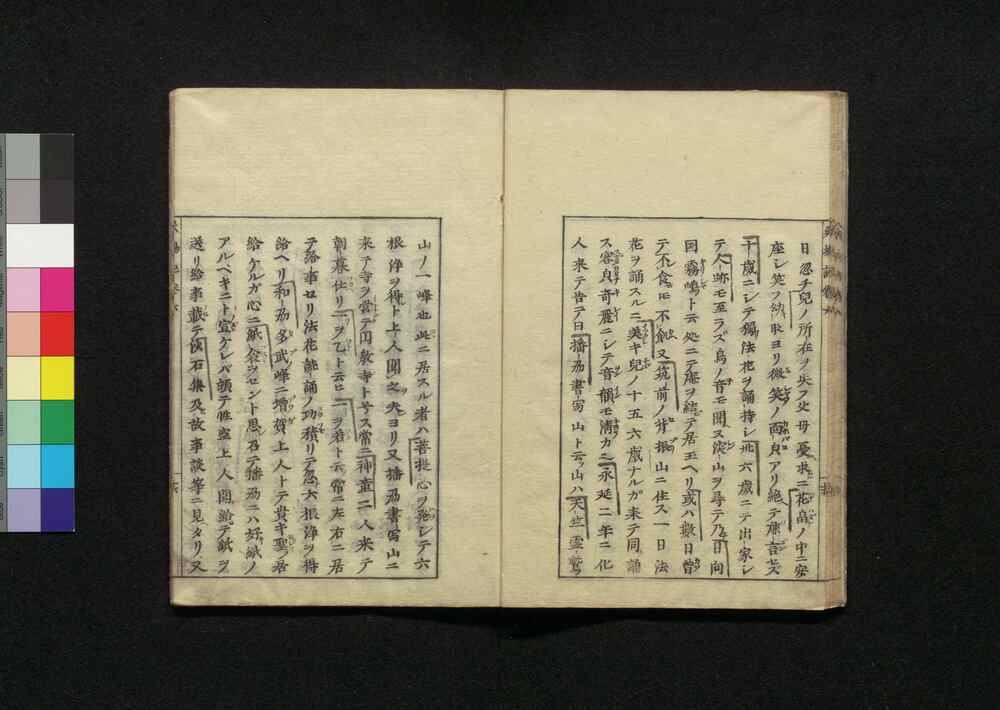 日忽チ兒ノ所在ヲ失フ父母憂求ニ花畠ノ中ニ安
座シ笑フ幼耻ヨリ微笑ノ面貞アリ絶テ麁言セズ
十歳ニシテ獨法花ヲ誦持シ卅六歳ニテ出家シ
テ人跡モ至ラズ鳥ノ音モ聞ヌ深山ヲ尋テ乃日向
国霧嶋ト云処ニテ菴ヲ結テ居玉ヘリ或ハ数日曾
テ不食モ不飢又筑前ノ背振山ニ住ス一日法
花ヲ誦スルニ英キ兒ノ十五六歳ナルガ来テ同誦
ス容貞奇麗ニシテ音韻モ清カニ永延二年ニ化
人来テ告テ曰播㕝書写山ト云ッ山ハ天竺霊鷲ノ
山ノ一峰也此ニ居スル者ハ菩提心ヲ発シテ六
根浄ヲ得ト上人聞之夫ヨリ又播㕝書写山ニ
来テ寺ヲ営テ円教寺ト号ス常ニ神童二人来テ
朝暮仕リ一ヲ乙ト云ヒ一ヲ若ト云常ニ左右ニ居
テ給事セリ法花読誦ノ功積リテ忽六根浄ヲ得
給ヘリ和㕝多武峰ニ増賀上人トテ貴キ聖ノ居
給ケルガ心ニ紙衾ヲセント思召テ播㕝ニハ好紙ノ
アルベキニト宣ケレバ頓テ性空上人聞給テ紙ヲ
送リ給事載テ沙石集及故事談等ニ見タリ又